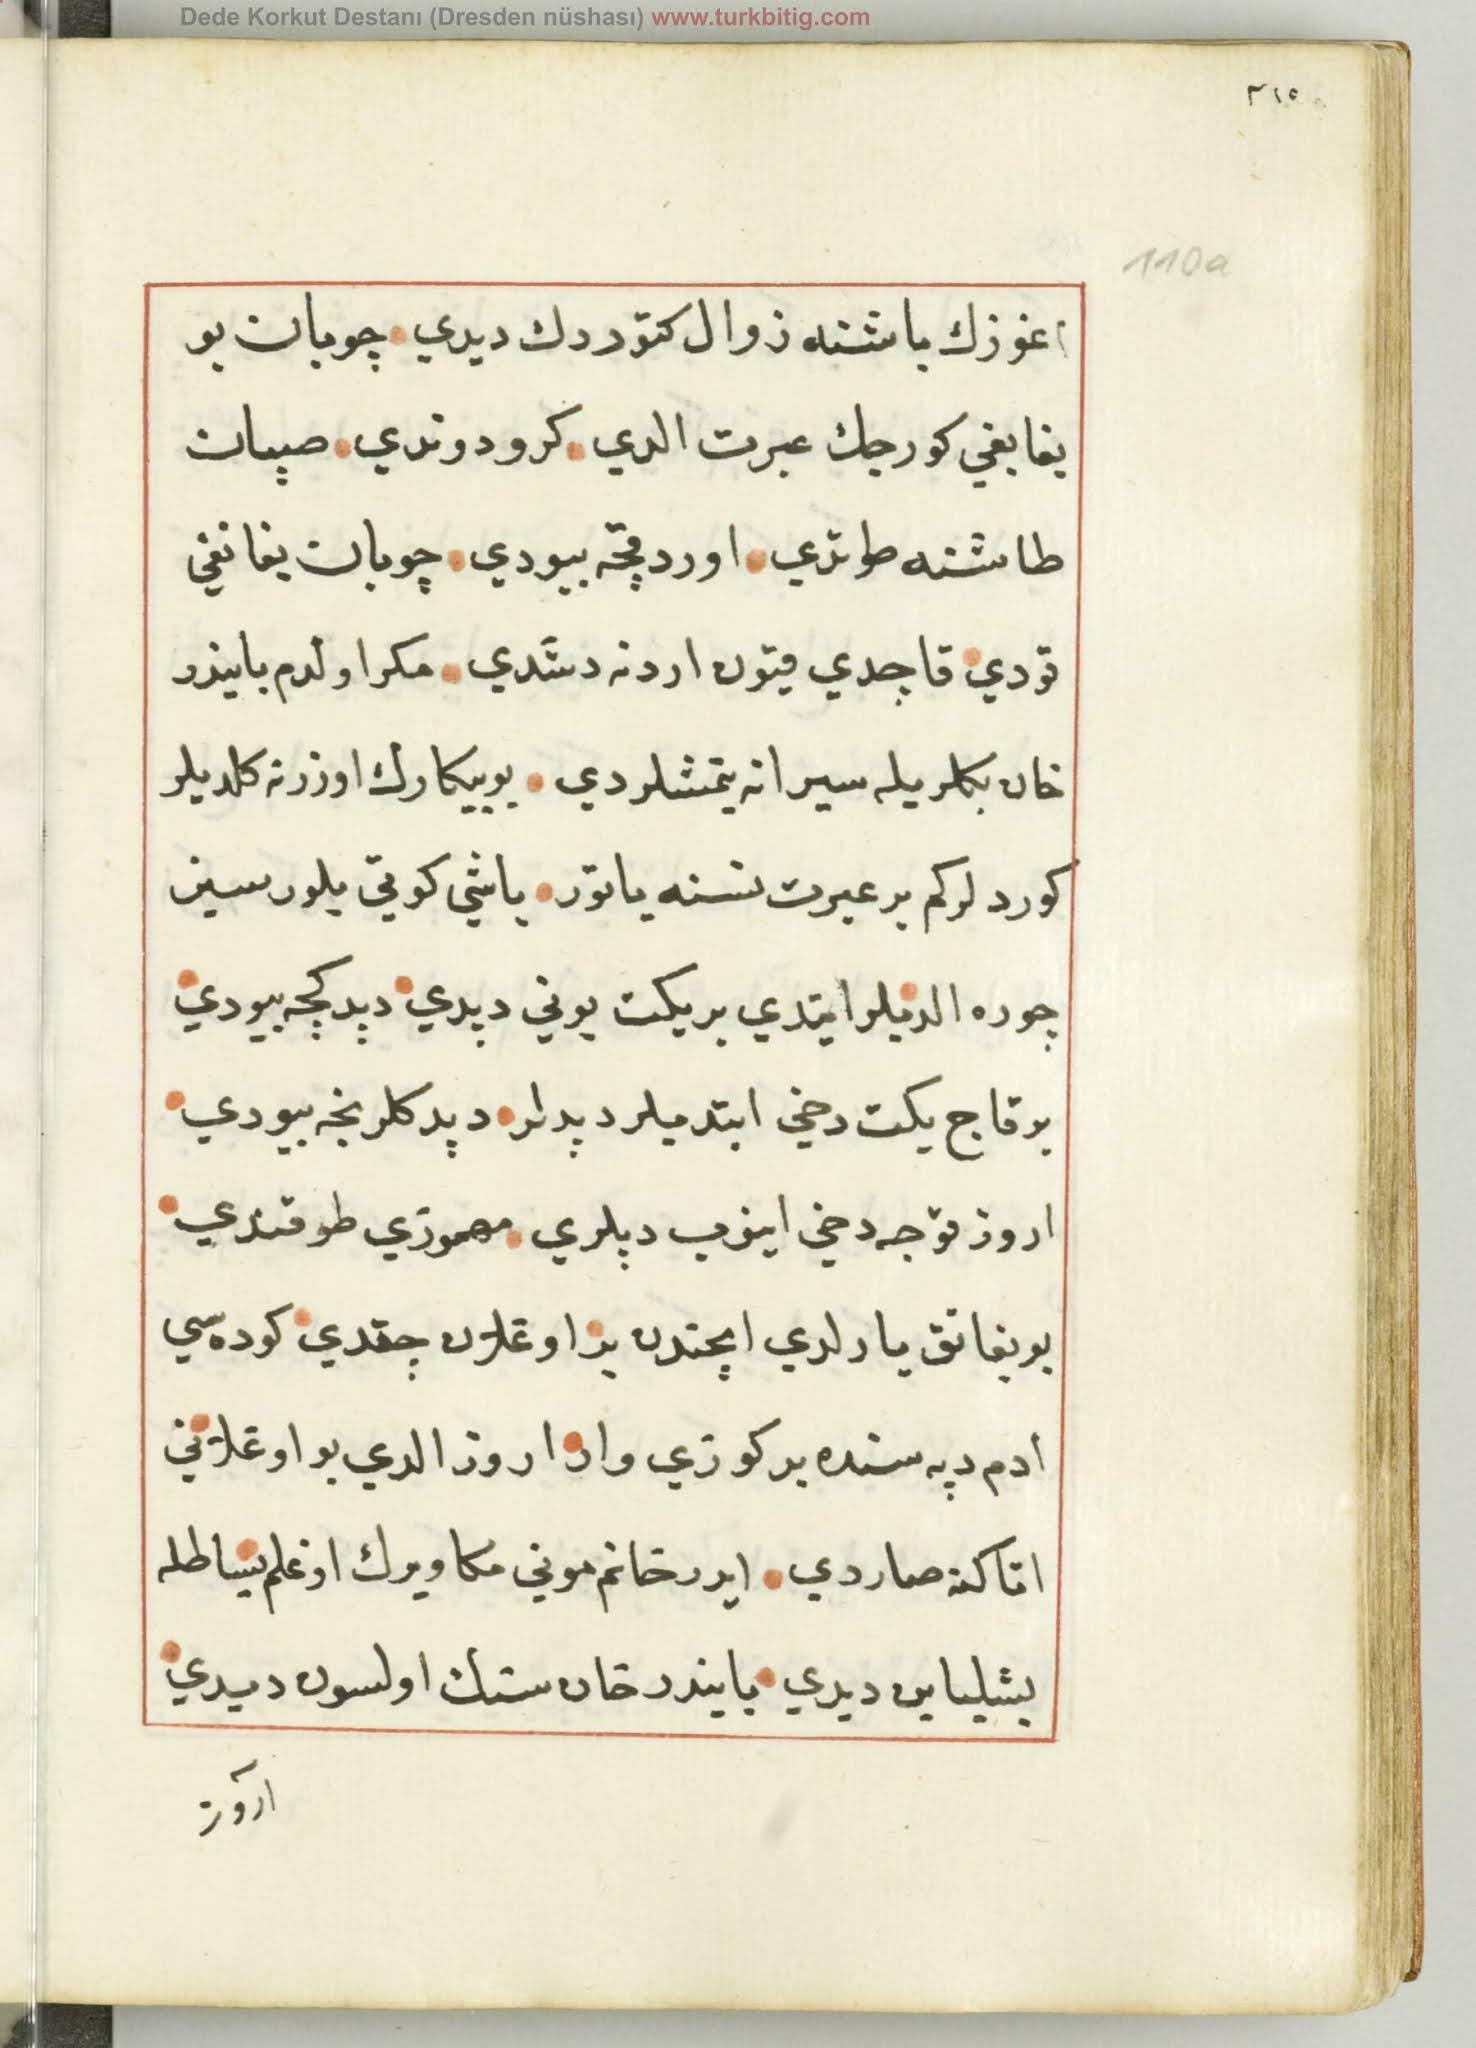 Dede Korkut Destanı (Dresden nüshası) www.turkbitig.com
٢١٥
110a
اغوزك باشنه زوال كتوردك ديدي چوبان بو
يغانغي كورجك عبرت الدي كرو دوندي صپان
طاشنه طوتدي اوردقچه بيودي چوبان يغانغي
قودي قاچدي قيون اردنه دشدي مكر اولدم بايندر
خان بكلريله سيرانه بنمشلردي بو بيكارك اوزرنه كلديلر
كوردلركم بر عبرت نسنه ياتور باشي كوتي بلورسيز
چوره الدیلر ايندي بر يكت بوني دپدي دپدكچه بيودي
بر قاچ يكت دخي ايندیلر دپدلر دپدكلرنجه بيودي
اروز قوجه دخي اينوب دپلدي مهموزي طوقندي
بو يغانق يارلدي ايچندن بر اوغلان چقدي كوده سي
ادم دپه سنده بر كوزي وار اروز الدي بو اوغلاني
اتاكنه صاردي ايدر خانم موني مكا ويرك اوغلم بساطله
بسليلياين ديدي بايندر خان سنك اولسون ديدي
اروز